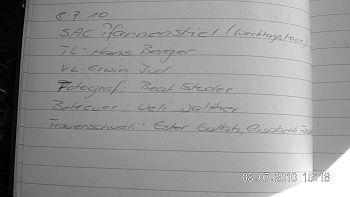 8.7.10
SAC Pfannenstiel (Werktagstour)
TL: Hans Berger
VL: Erwin Jud
Fotograf: Beat Studer
Betreuer: Ueli Walther
Ester Elisabeth
08-07-2010 15:18